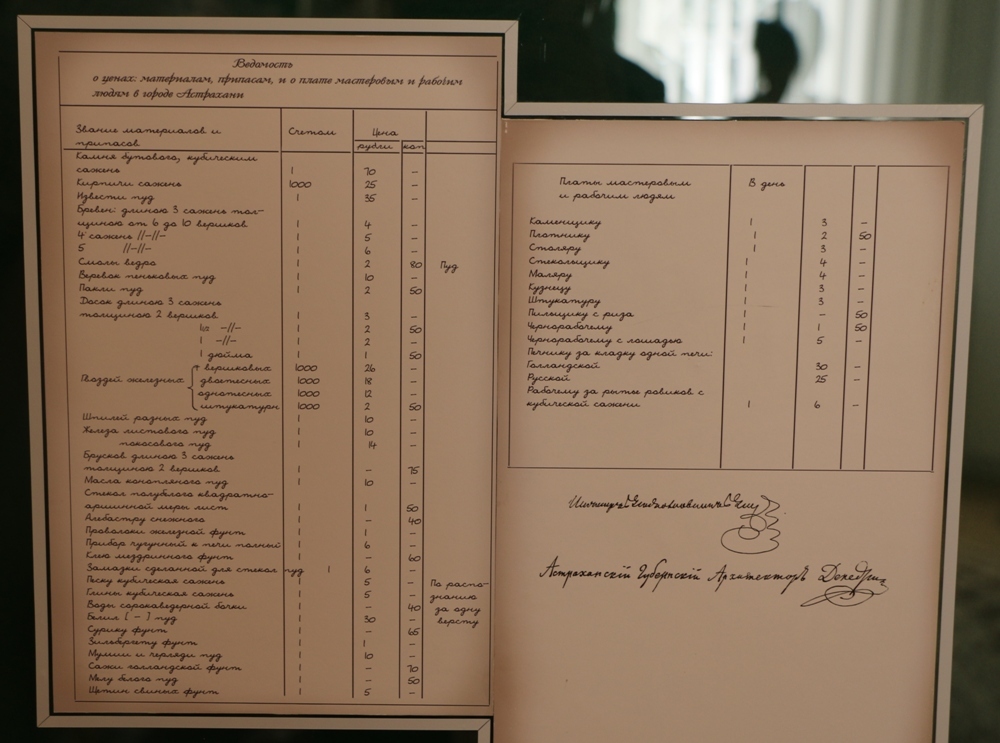 Ведомость
о ценах: материалам, припасам, и о плате мастеровым и рабочим
людям в городе Астрахани
Звание материалов и припасов Счетом Цена рубли коп
Камня бутового, кубическим
сажень 1 70 –
Кирпичи сажень 1000 25 –
Извести пуд 1 35 –
Бревен: длиною 3 сажень тол-
щиною от 6 до 10 вершков 1 4 –
4 сажень //–//– 1 5 –
5 //–//– 1 6 –
Смолы ведро 1 2 80 Пуд
Веревок пеньковых пуд 1 10 –
Пакли пуд 1 2 50
Досок длиною 3 сажень
толщиною 2 вершков 1 3 –
–//– 1 2 50
1 –//– 1 2 –
1 дюйма 1 1 50
Гвоздей железных { вершковых 1000 26 –
двоетесных 1000 18 –
однотесных 1000 12 –
штукатурн 1000 2 50
Шпилей разных пуд 1 10 –
Железа листового пуд 1 10 –
полосового пуд 1 14 –
Брусков длиною 3 сажень
толщиною 2 вершков 1 – 75
Масла конопляного пуд 1 10 –
Стекол полубелого квадратно-
аршинной меры лист 1 1 50
Алебастру снежного 1 – 40
Проволоки железной фунт 1 1 –
Прибор чугунный к печи полный 1 6 –
Клею мездринного фунт 1 – 60
Замазки сделанной для стекол пуд 1 6 –
Песку кубическая сажень 1 5 – По распо-
Глины кубическая сажень 1 5 – знанию
Воды сорокаведерной бочки 1 – 40 за одну
Белил [ – ] пуд 1 30 – версту
Сурику фунт 1 – 65
Зильберглету фунт 1 1 –
Мумии и черляди пуд 1 10 –
Сажи голландской фунт 1 – 70
Мелу белого пуд 1 – 50
Щетин свиных фунт 1 5 –
Платы мастеровым В день
и рабочим людям
Каменщику 1 3 –
Плотнику 1 2 50
Столяру 1 3 –
Стекольщику 1 4 –
Маляру 1 4 –
Кузнецу 1 3 –
Штукатуру 1 3 –
Пильщику с риза 1 – 50
Чернорабочему 1 1 50
Чернорабочему с лошадью 1 5 –
Печнику за кладку одной печи:
Голландской 30 –
Русской 25 –
Рабочему за рытье ровиков с
кубической сажени 1 6 –
Астраханскій Губернскій Архитекторъ